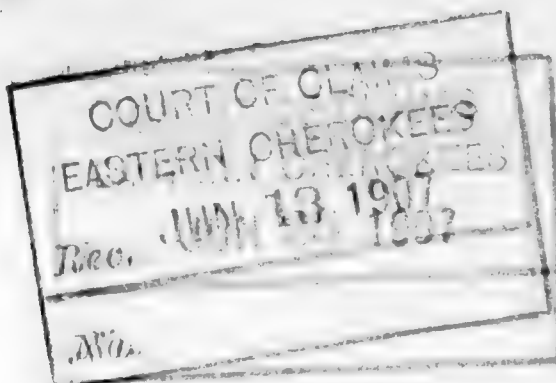 COURT OF CLAIMS
EASTERN CHEROKEES
Rec. JUN 13 1907
No.